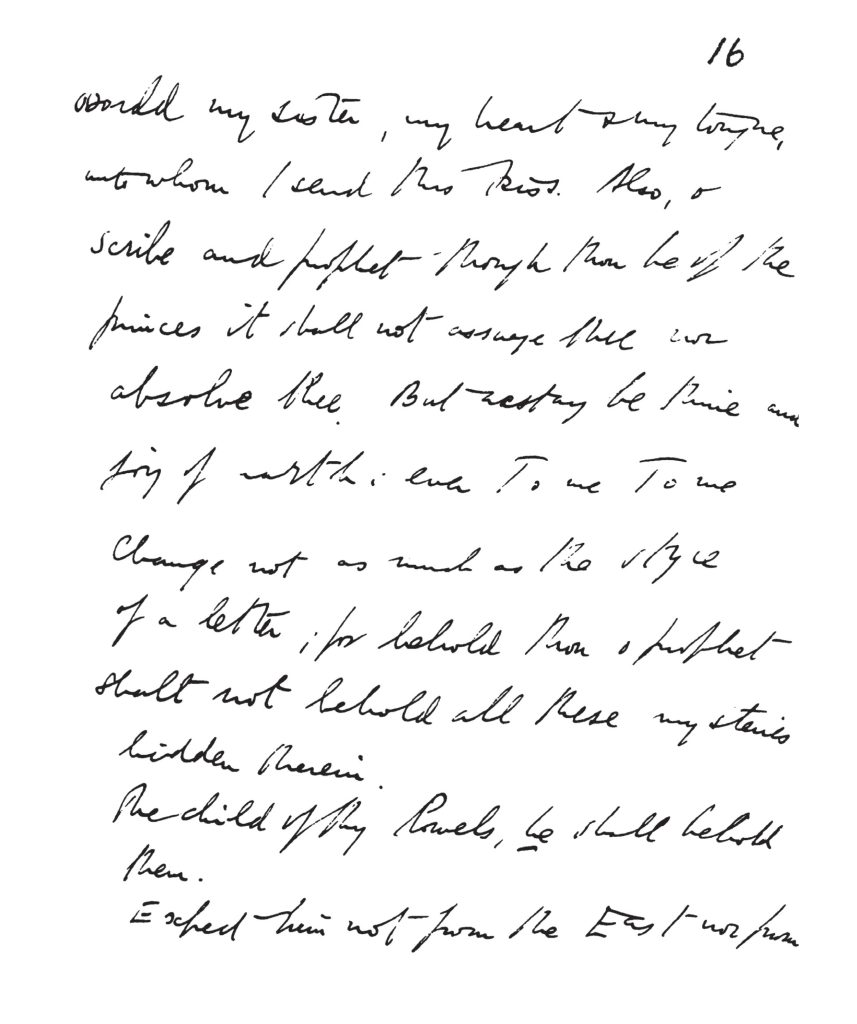 16
world my sister, my heart & my tongue,
unto whom I send this kiss. Also, o
scribe and prophet though thou be of the
princes it shall not assuage thee nor
absolve thee. But ecstasy be thine and
joy of earth: ever To me To me
Change not as much as the style
of a letter; for behold thou o prophet
shalt not behold all these mysteries
hidden therein.
The child of thy bowels, he shall behold
them.
Expect him not from the East nor from